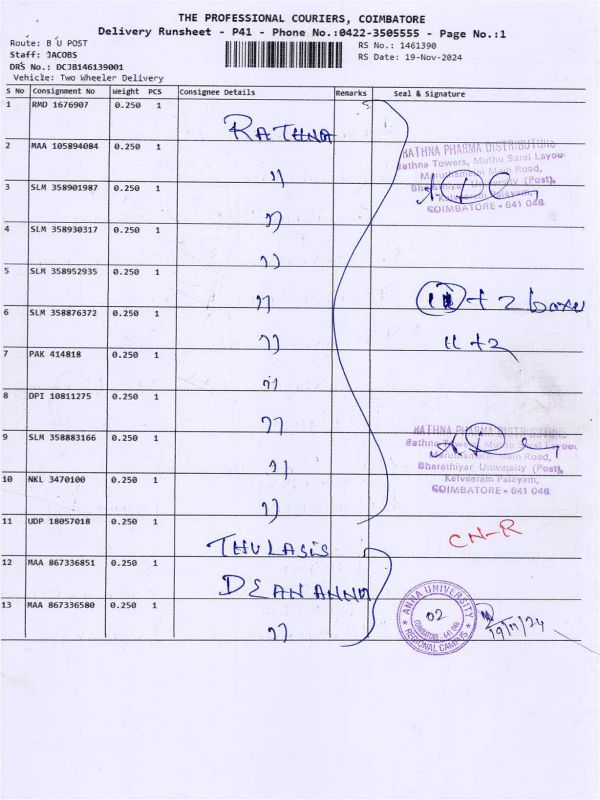 THE PROFESSIONAL COURIERS, COIMBATORE
Delivery Runsheet - P41 - Phone No.:0422-3505555 - Page No.:1
Route: B U POST
Staff: JACOBS
DRS No.: DCJB146139001
Vehicle: Two Wheeler Delivery
RS No.: 1461390
RS Date: 19-Nov-2024
S No Consignment No Weight PCS Consignee Details Remarks Seal & Signature
1 RMD 1676907 0.250 1 RATHNA
2 MAA 105894084 0.250 1 "
3 SLM 358901987 0.250 1 "
4 SLM 358930317 0.250 1 "
5 SLM 358952935 0.250 1 "
6 SLM 358876372 0.250 1 "
7 PAK 414818 0.250 1 "
8 DPI 10811275 0.250 1 "
9 SLM 358883166 0.250 1 "
10 NKL 3470100 0.250 1 "
11 UDP 18057018 0.250 1 THULASIS
12 MAA 867336851 0.250 1 DEAN ANNA
13 MAA 867336580 0.250 1 "
RATHNA PHARMA DISTRIBUTORS
Rathna Towers, Muthu Sami Layou
Maruthamalai Main Road,
Bharathiyar University (Post),
Kalveeram Palayam,
COIMBATORE - 641 046
11 + 2 boxes
11+2
RATHNA PHARMA DISTRIBUTORS
Rathna Towers, Muthu Sami Layou
Maruthamalai Main Road,
Bharathiyar University (Post),
Kalveeram Palayam,
COIMBATORE - 641 046
CN-R
ANNA UNIVERSITY
02
COIMBATORE - 641 046
REGIONAL CAMPUS
19/11/24